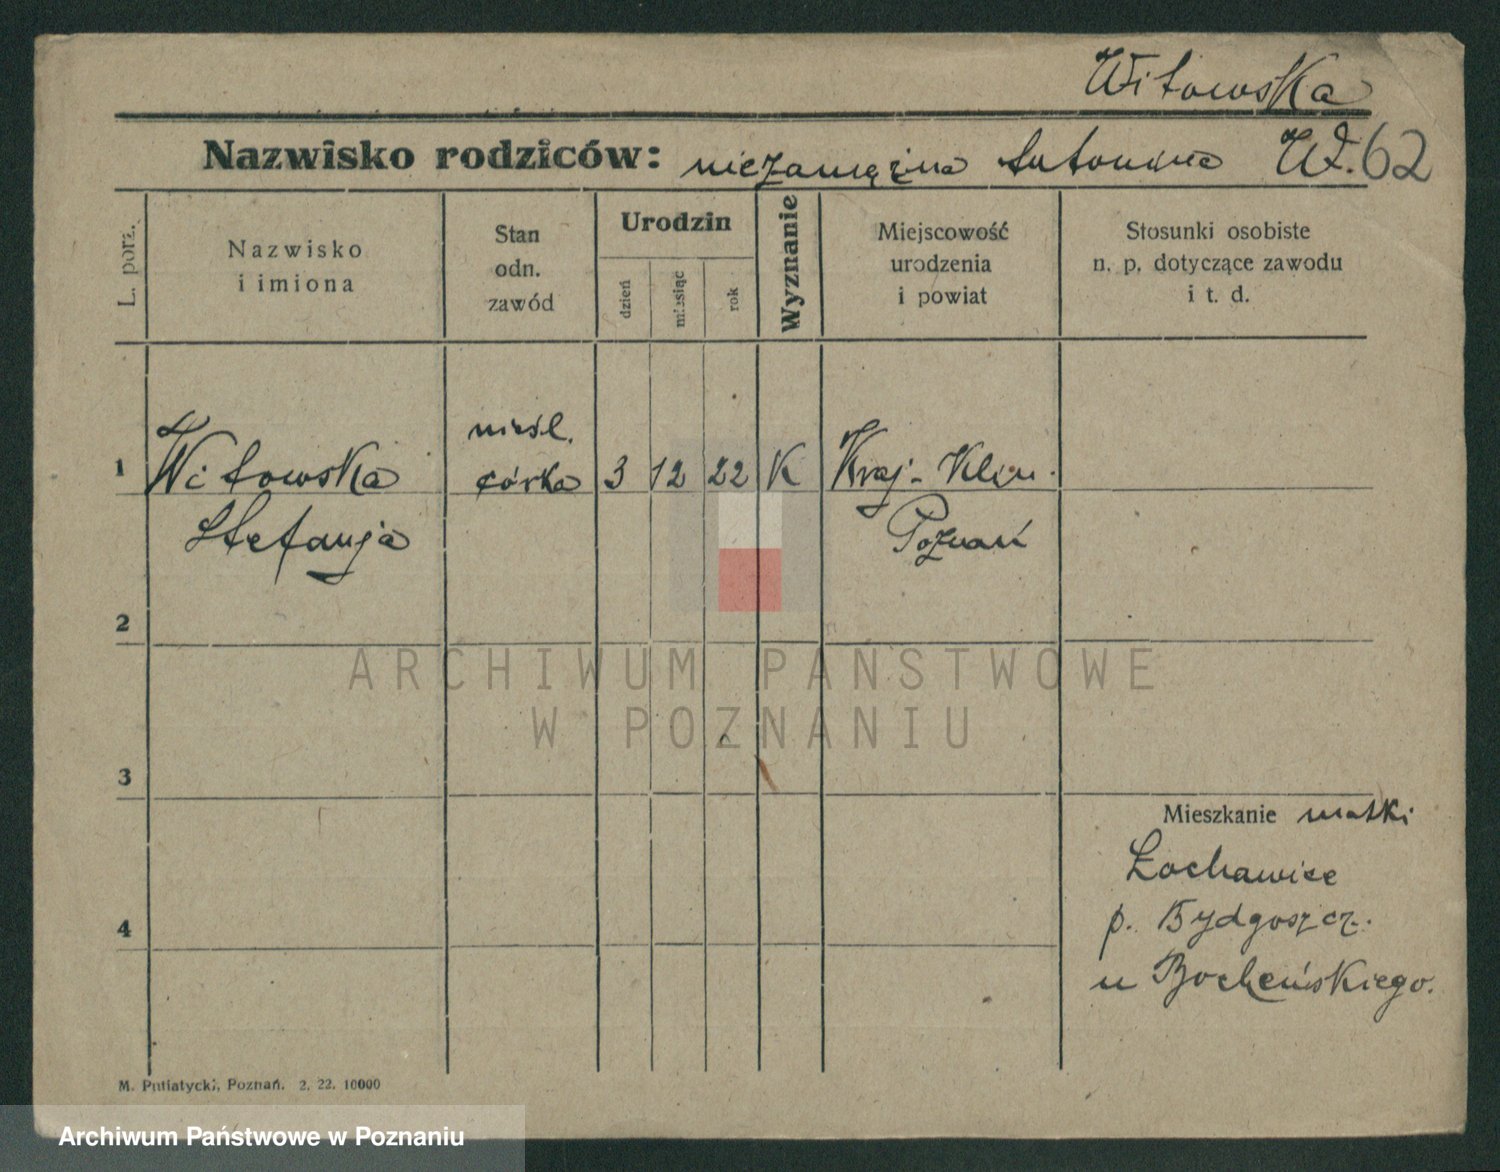 Witowska
Nazwisko rodziców: niezamężna Antonina W.62
L. porz.
Nazwisko
i imiona
Stan
odn.
zawód
Urodzin
dzień
miesiąc
rok
Wyznanie
Miejscowość
urodzenia
i powiat
Stosunki osobiste
n. p. dotyczące zawodu
i t. d.
nieśl.
1 Witowska córka 3 12 22 K Kraj-Klin.
Stefanja Poznań
2
ARCHIWUM PAŃSTWOWE
W POZNANIU
3
Mieszkanie matki
Łochawice
p. Bydgoszcz.
4
u Bocheńskiego.
M. Putiatycki, Poznań. 2. 22. 10000
Archiwum Państwowe w Poznaniu